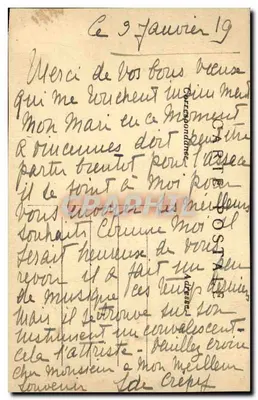 Ce 9 Janvier 19
Merci de Vos bons Vœux
qui me touchent infiniment
Mon Mari en ce moment
à Vincennes doit peut être
partir bientôt pour
il se joint à Moi pour
Vous envoyer ses meilleurs
souhaits Comme Moi il
serait heureuse de vous
revoir il a fait un peu
de musique ces temps derniers
Mais il se trouve sur son
instrument un convalescent.
cela l'attriste - Veuillez croire
cher Monsieur à Mon Meilleur
Souvenir
S de Crépy
CARTE POSTALE
Correspondance
Adresse